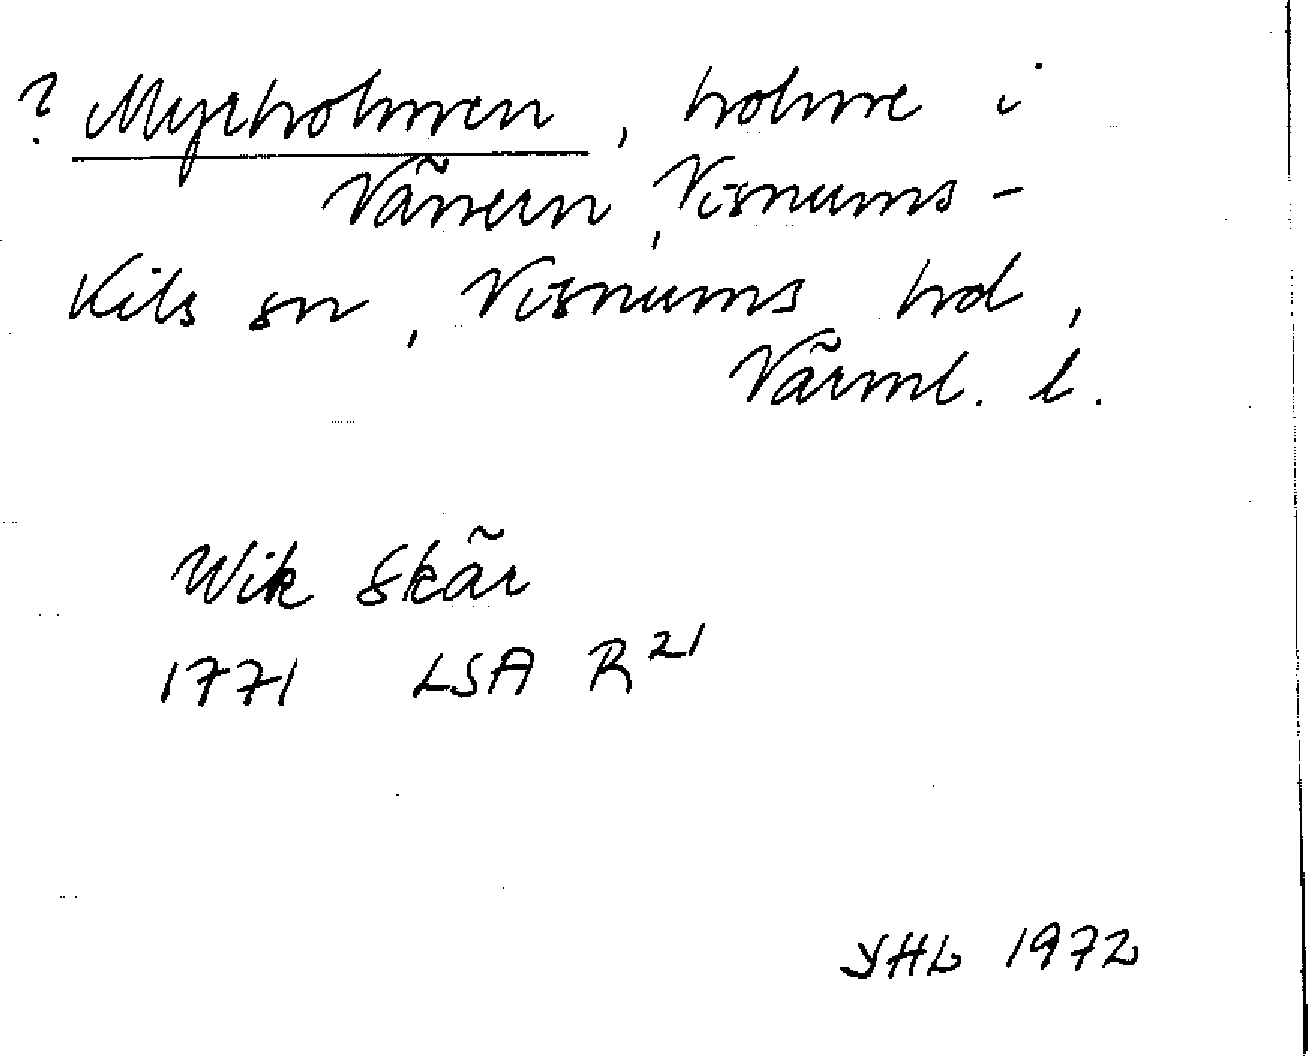 ? Myrholmen, holme i
Vänern, Visnums-
Kils sn, Visnums hd,
Värml. l.
Wik Skär
1771 LSA R 21
YHL 1972